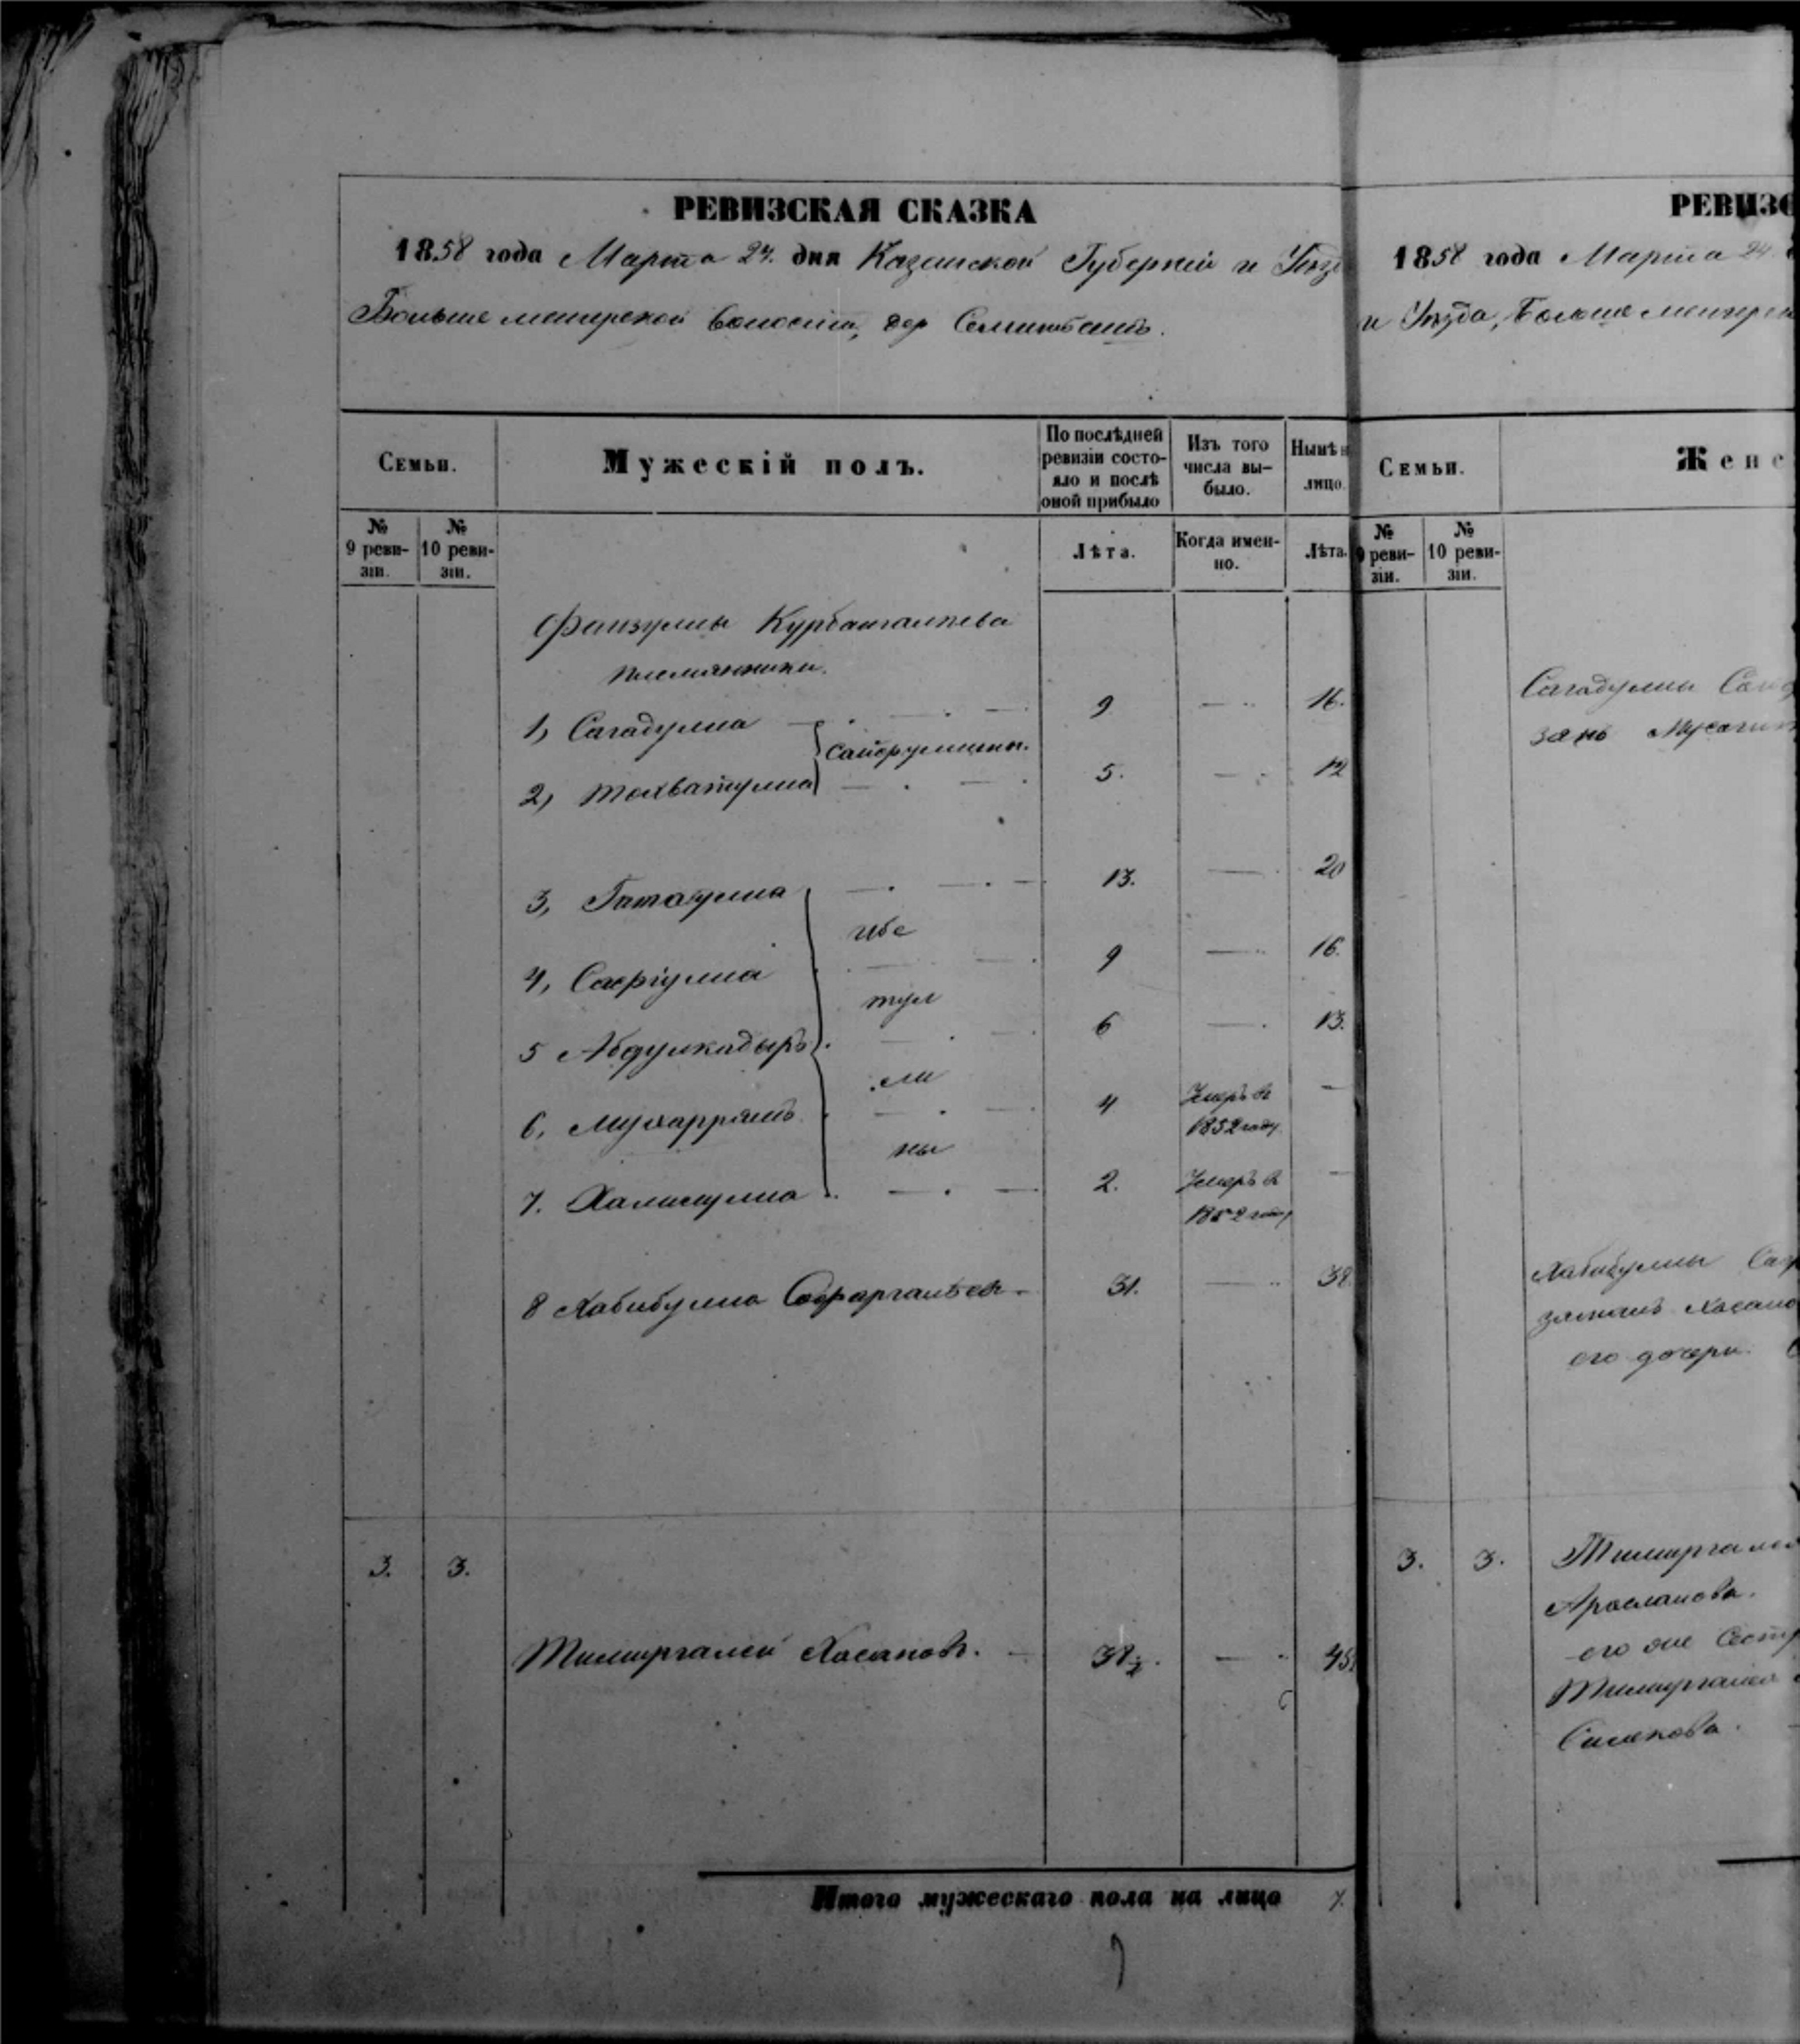 РЕВИЗСКАЯ СКАЗКА
1858 года Марта 24. дня Казанской Губерніи и Уѣз
Больше менгерской волости, дер
Семьи.
Мужескій полъ.
По послѣдней ревизіи состо-
яло и послѣ оной прибыло
Изъ того числа вы-
было.
Нынѣ н
лицо.
№ 9 реви-
зіи.
№ 10 реви-
зіи.
Лѣта.
Когда имен-
но.
Лѣта.
Фаизуллы Курбангалѣева
племянники.
1, Сагадулла 9 — 16.
Сайфуллины.
2, Тохватулла 5. — 12
3, Гатаулла 13. — 20
ибе
4, Сафіулла 9 — 16.
тул
5 Абдулкадыръ 6 — 13.
ли
6, Мухаррямъ 4 Умеръ в 1852 году —
ны
7. Халиулла 2. Умеръ в 1852 году —
8 Хабибулла 31. — 38
3. 3.
Тимиргалей Хасановъ. 38½. — 45
Итого мужескаго пола на лицо 7.
РЕВИЗС
1858 года Марта 24
и Уѣзда, Больше менгерс
Семьи.
Женс
№ 9 реви-
зіи.
№ 10 реви-
зіи.
Сагадуллы
Хабибуллы
его дочери
3. 3. Тимиргалея
Арсланова.
его же сест
Тимиргалея